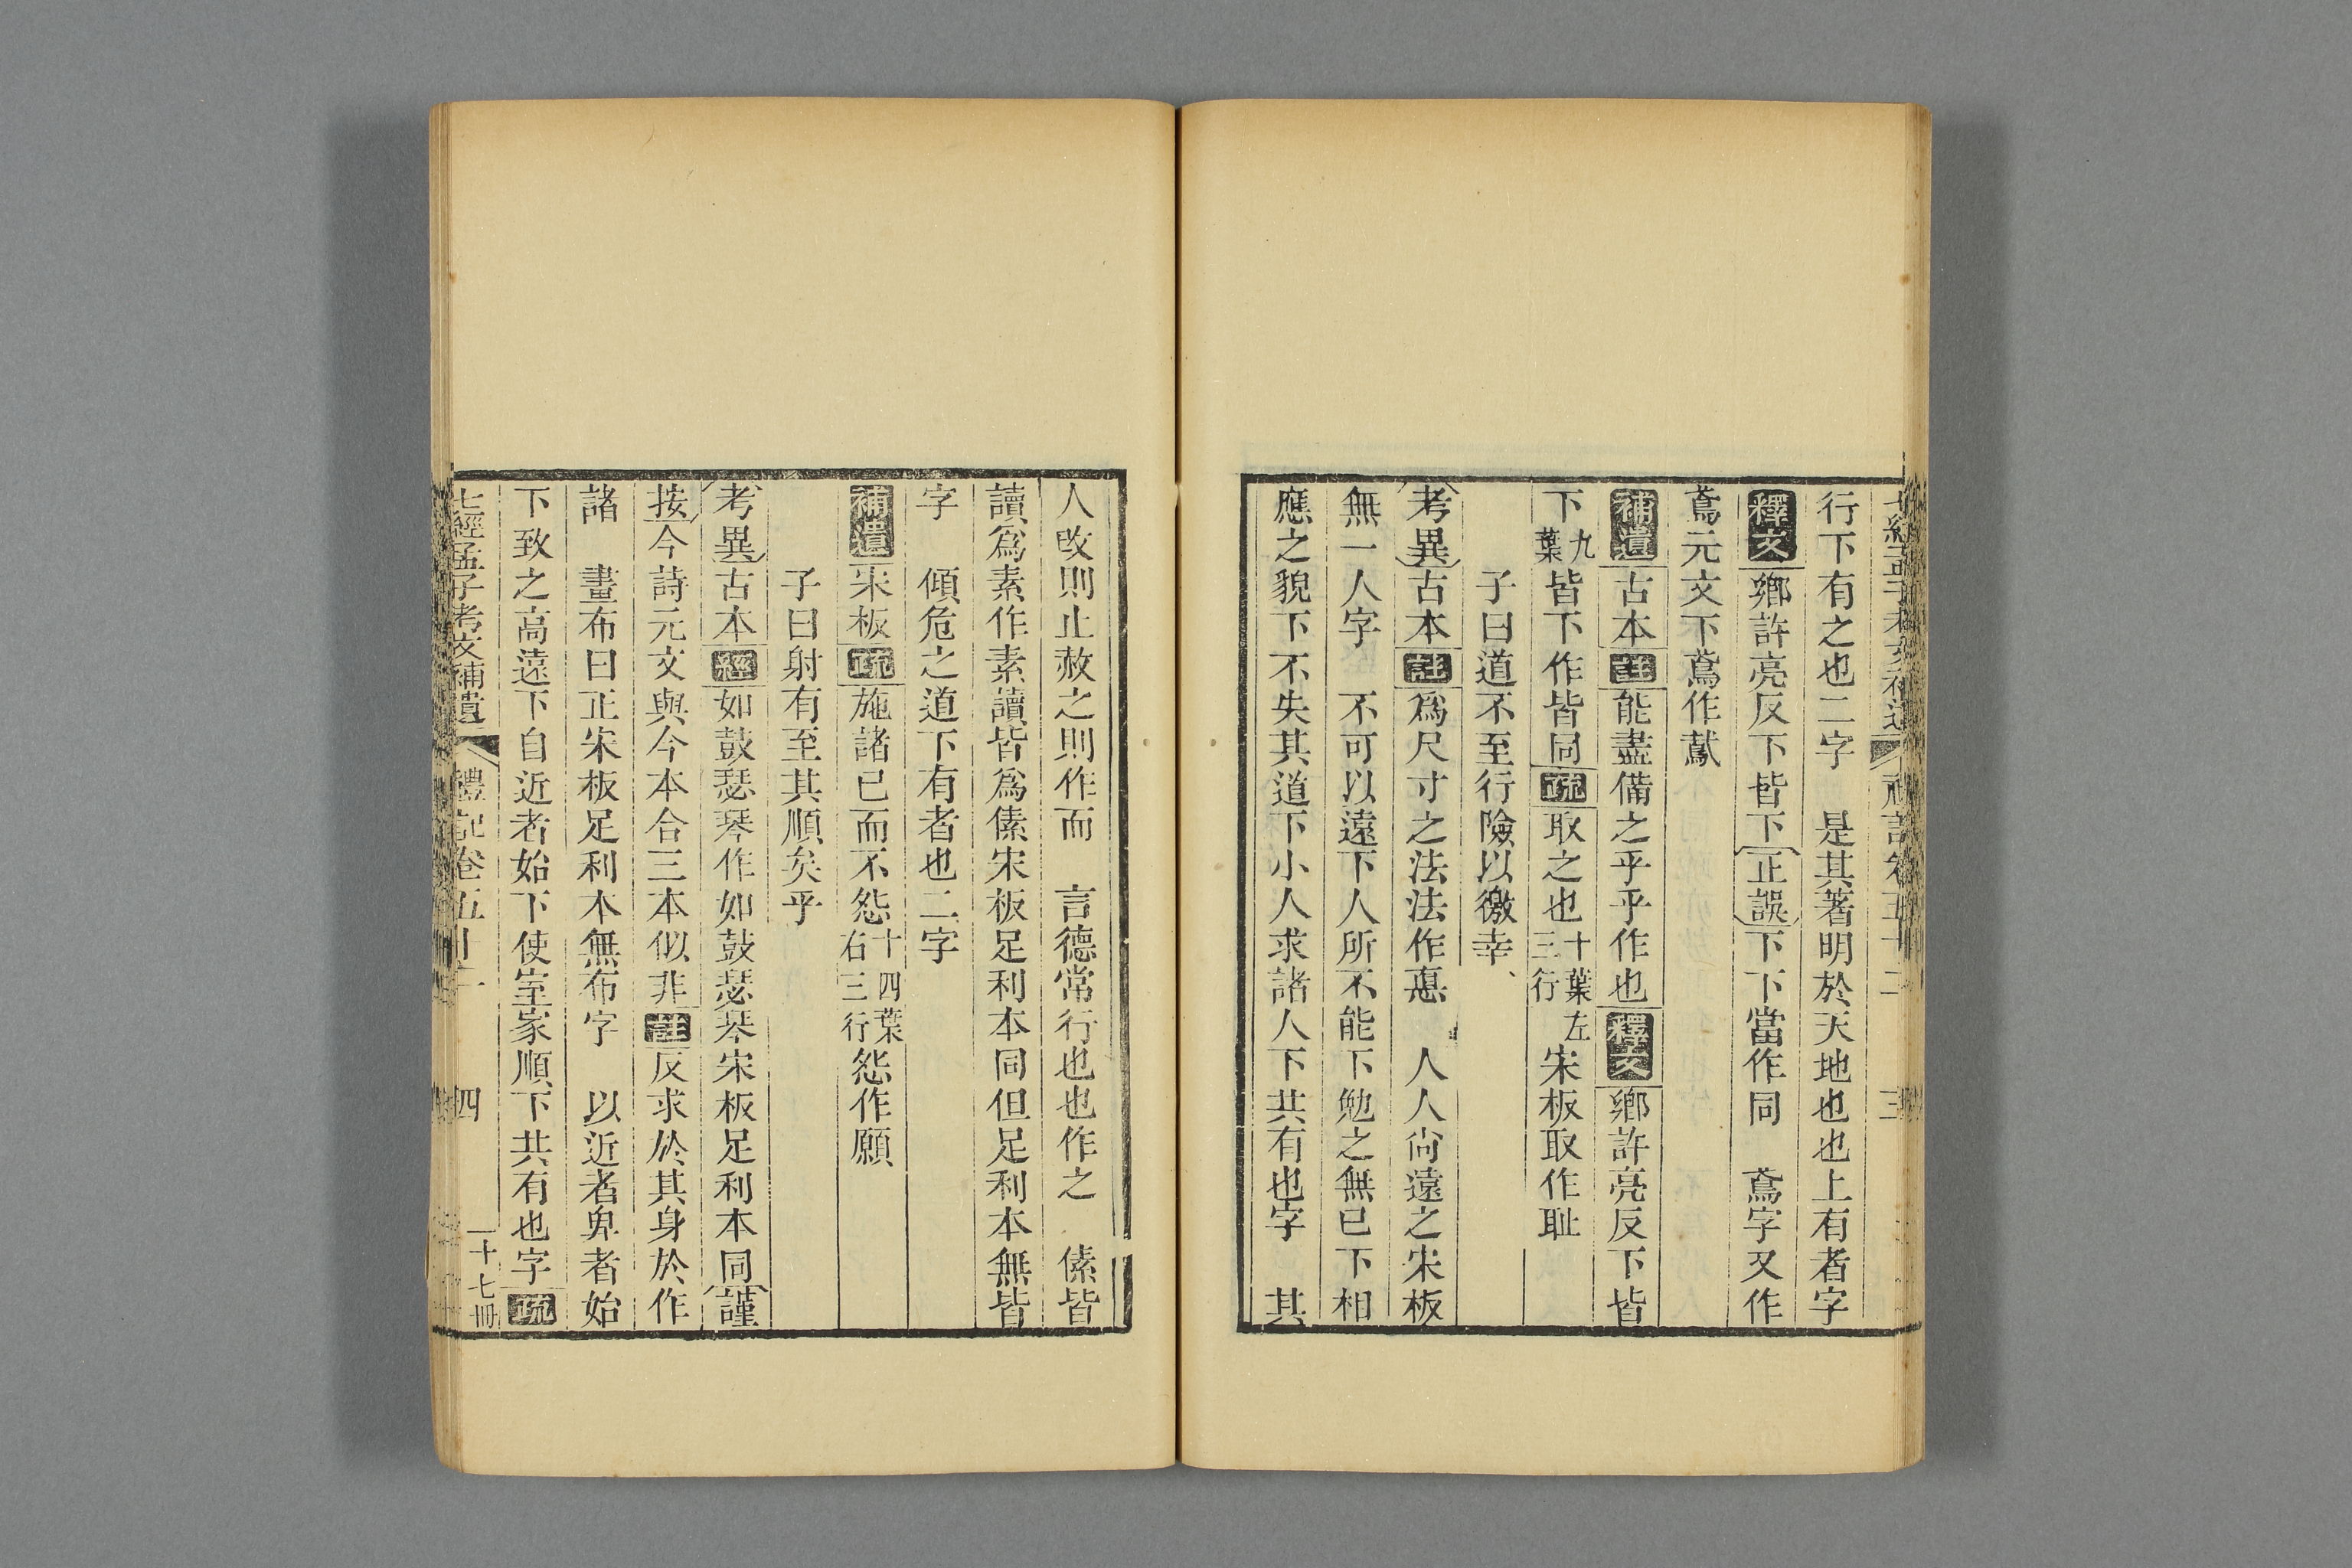 行下有之也二字　是其著明於天地也也上有者字
釋文鄉許亮反下皆下正誤下下當作同　鳶字又作
鳶元文下鳶作鷻
補遺古本註能盡備之乎乎作也釋文鄉許亮反下皆
下九葉皆下作皆同疏取之也十葉左三行宋板取作耻
子曰道不至行險以徼幸
考異古本註爲尺寸之法法作惪　人人尙遠之宋板
無一人字　不可以遠下人所不能下勉之無已下相
應之貌下不失其道下小人求諸人下共有也字　其
人改則止赦之則作而　言德常行也也作之　傃皆
讀爲素作素讀皆爲傃宋板足利本同但足利本無皆
字　傾危之道下有者也二字
補遺宋板疏施諸已而不怨十四葉右三行怨作願
子曰射有至其順矣乎
考異古本經如鼓瑟琴作如鼓瑟琹宋板足利本同謹
按今詩元文與今本合三本似非註反求於其身於作
諸　畫布曰正宋板足利本無布字　以近者卑者始
下致之高遠下自近者始下使室家順下共有也字疏
七經孟子考文補遺　禮記卷五十二　四　十七冊